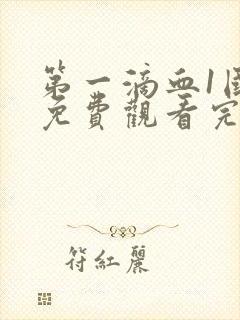 第一滴血1
免費觀看完
符紅麗